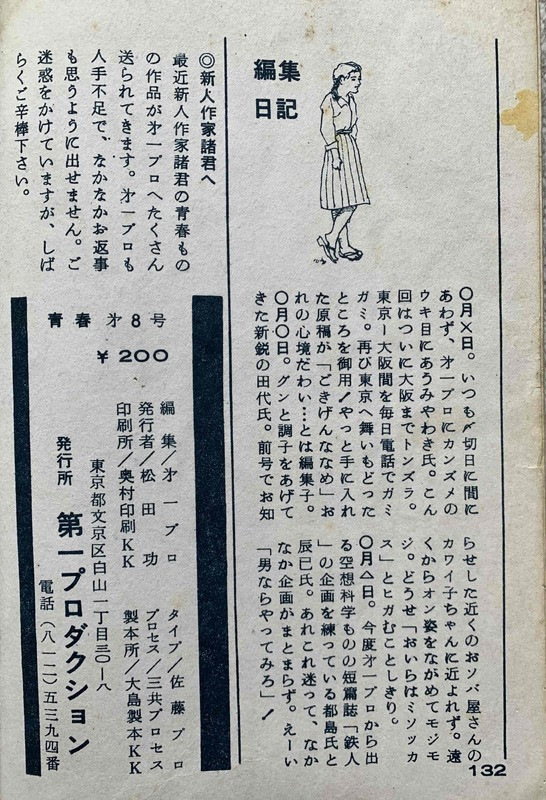 編集
日記
〇月×日。いつも〆切日に間に
あわず、才一プロにカンズメの
ウキ目にあうみやわき氏。こん
回はついに大阪までトンズラ。
東京ー大阪間を毎日電話でガミ
ガミ。再び東京へ舞いもどった
ところを御用！やっと手に入れ
た原稿が「ごきげんななめ」お
れの心境だわい…とは編集子。
〇月〇日。グンと調子をあげて
きた新鋭の田代氏。前号でお知
らせした近くのおソバ屋さんの
カワイ子ちゃんに近よれず。遠
くからオン姿をながめてモジモ
ジ。どうせ「おいらはミソッカ
ス」とヒガむことしきり。
〇月△日。今度才一プロから出
る空想科学ものの短篇誌「鉄人
」の企画を練っている都島氏と
辰巳氏。あれこれ迷って、なか
なか企画がまとまらず。えーい
「男ならやってみろ」！
132
◎新人作家諸君へ
最近新人作家諸君の青春もの
の作品が才一プロへたくさん
送られてきます。才一プロも
人手不足で、なかなかお返事
も思うように出せません。ご
迷惑をかけていますが、しば
らくご辛棒下さい。
青春 才8号
￥200
編集／才一プロ
発行者／松田功
印刷所／奥村印刷KK
タイプ／佐藤プロ
プロセス／三共プロセス
製本所／大島製本KK
東京都文京区白山一丁目三〇ー八
発行所 第一プロダクション
電話（八一二）五三九四番